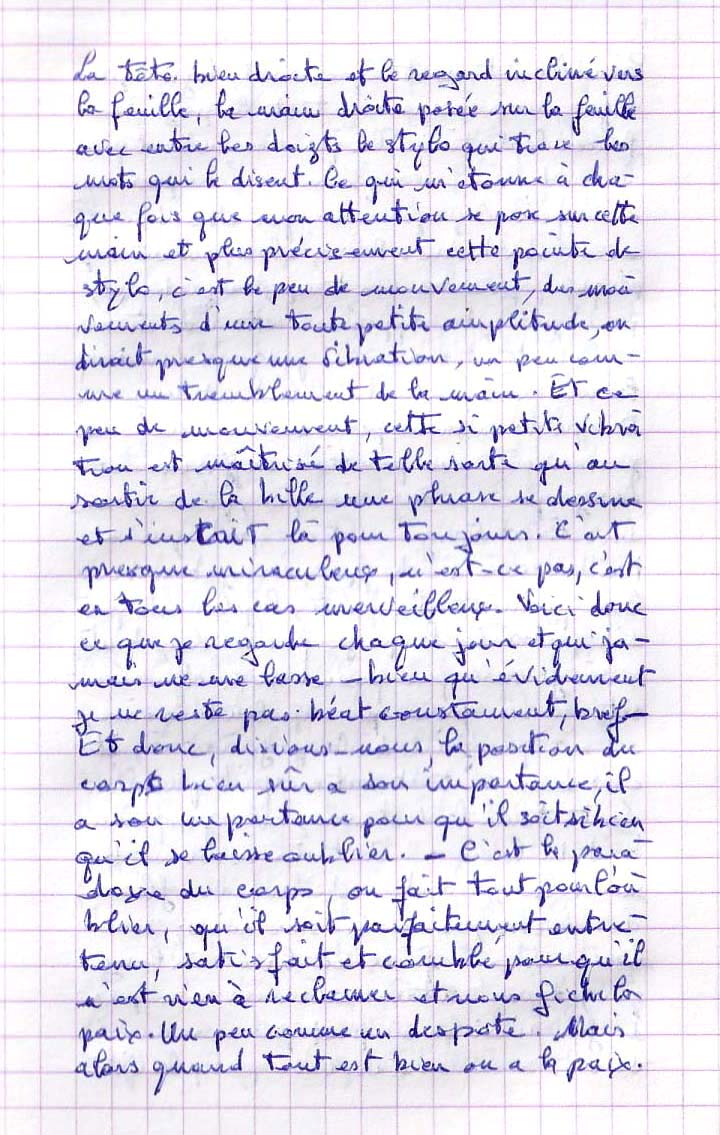 La tête bien droite et le regard incliné vers
la feuille, la main droite posée sur la feuille
avec entre les doigts le stylo qui trace les
mots qui le disent. Ce qui m'étonne à cha-
que fois que mon attention se pose sur cette
main et plus précisement cette pointe de
stylo, c'est le peu de mouvement, des mou
vements d'une toute petite amplitude, on
dirait presque une vibration, un peu com-
me un tremblement de la main. Et ce
peu de mouvement, cette si petite vibra
tion est maîtrisé de telle sorte qu'au
sortir de la bille une phrase se dessine
et s'inscrit là pour toujours. C'est
presque miraculeux, n'est-ce pas, c'est
en tous les cas merveilleux. Voici donc
ce que je regarde chaque jour et qui ja-
mais ne me lasse – bien qu'évidemment
je ne reste pas béat constamment, bref –
Et donc, disions-nous, la position du
corps bien sûr a son importance, il
a son importance pour qu'il soit si bien
qu'il se laisse oublier. – C'est le para
doxe du corps, on fait tout pour l'ou
blier, qu'il soit parfaitement entre-
tenu, satisfait et comblé pour qu'il
n'est rien à réclamer et nous fiche la
paix. Un peu comme un despote. Mais
alors quand tout est bien on a la paix.